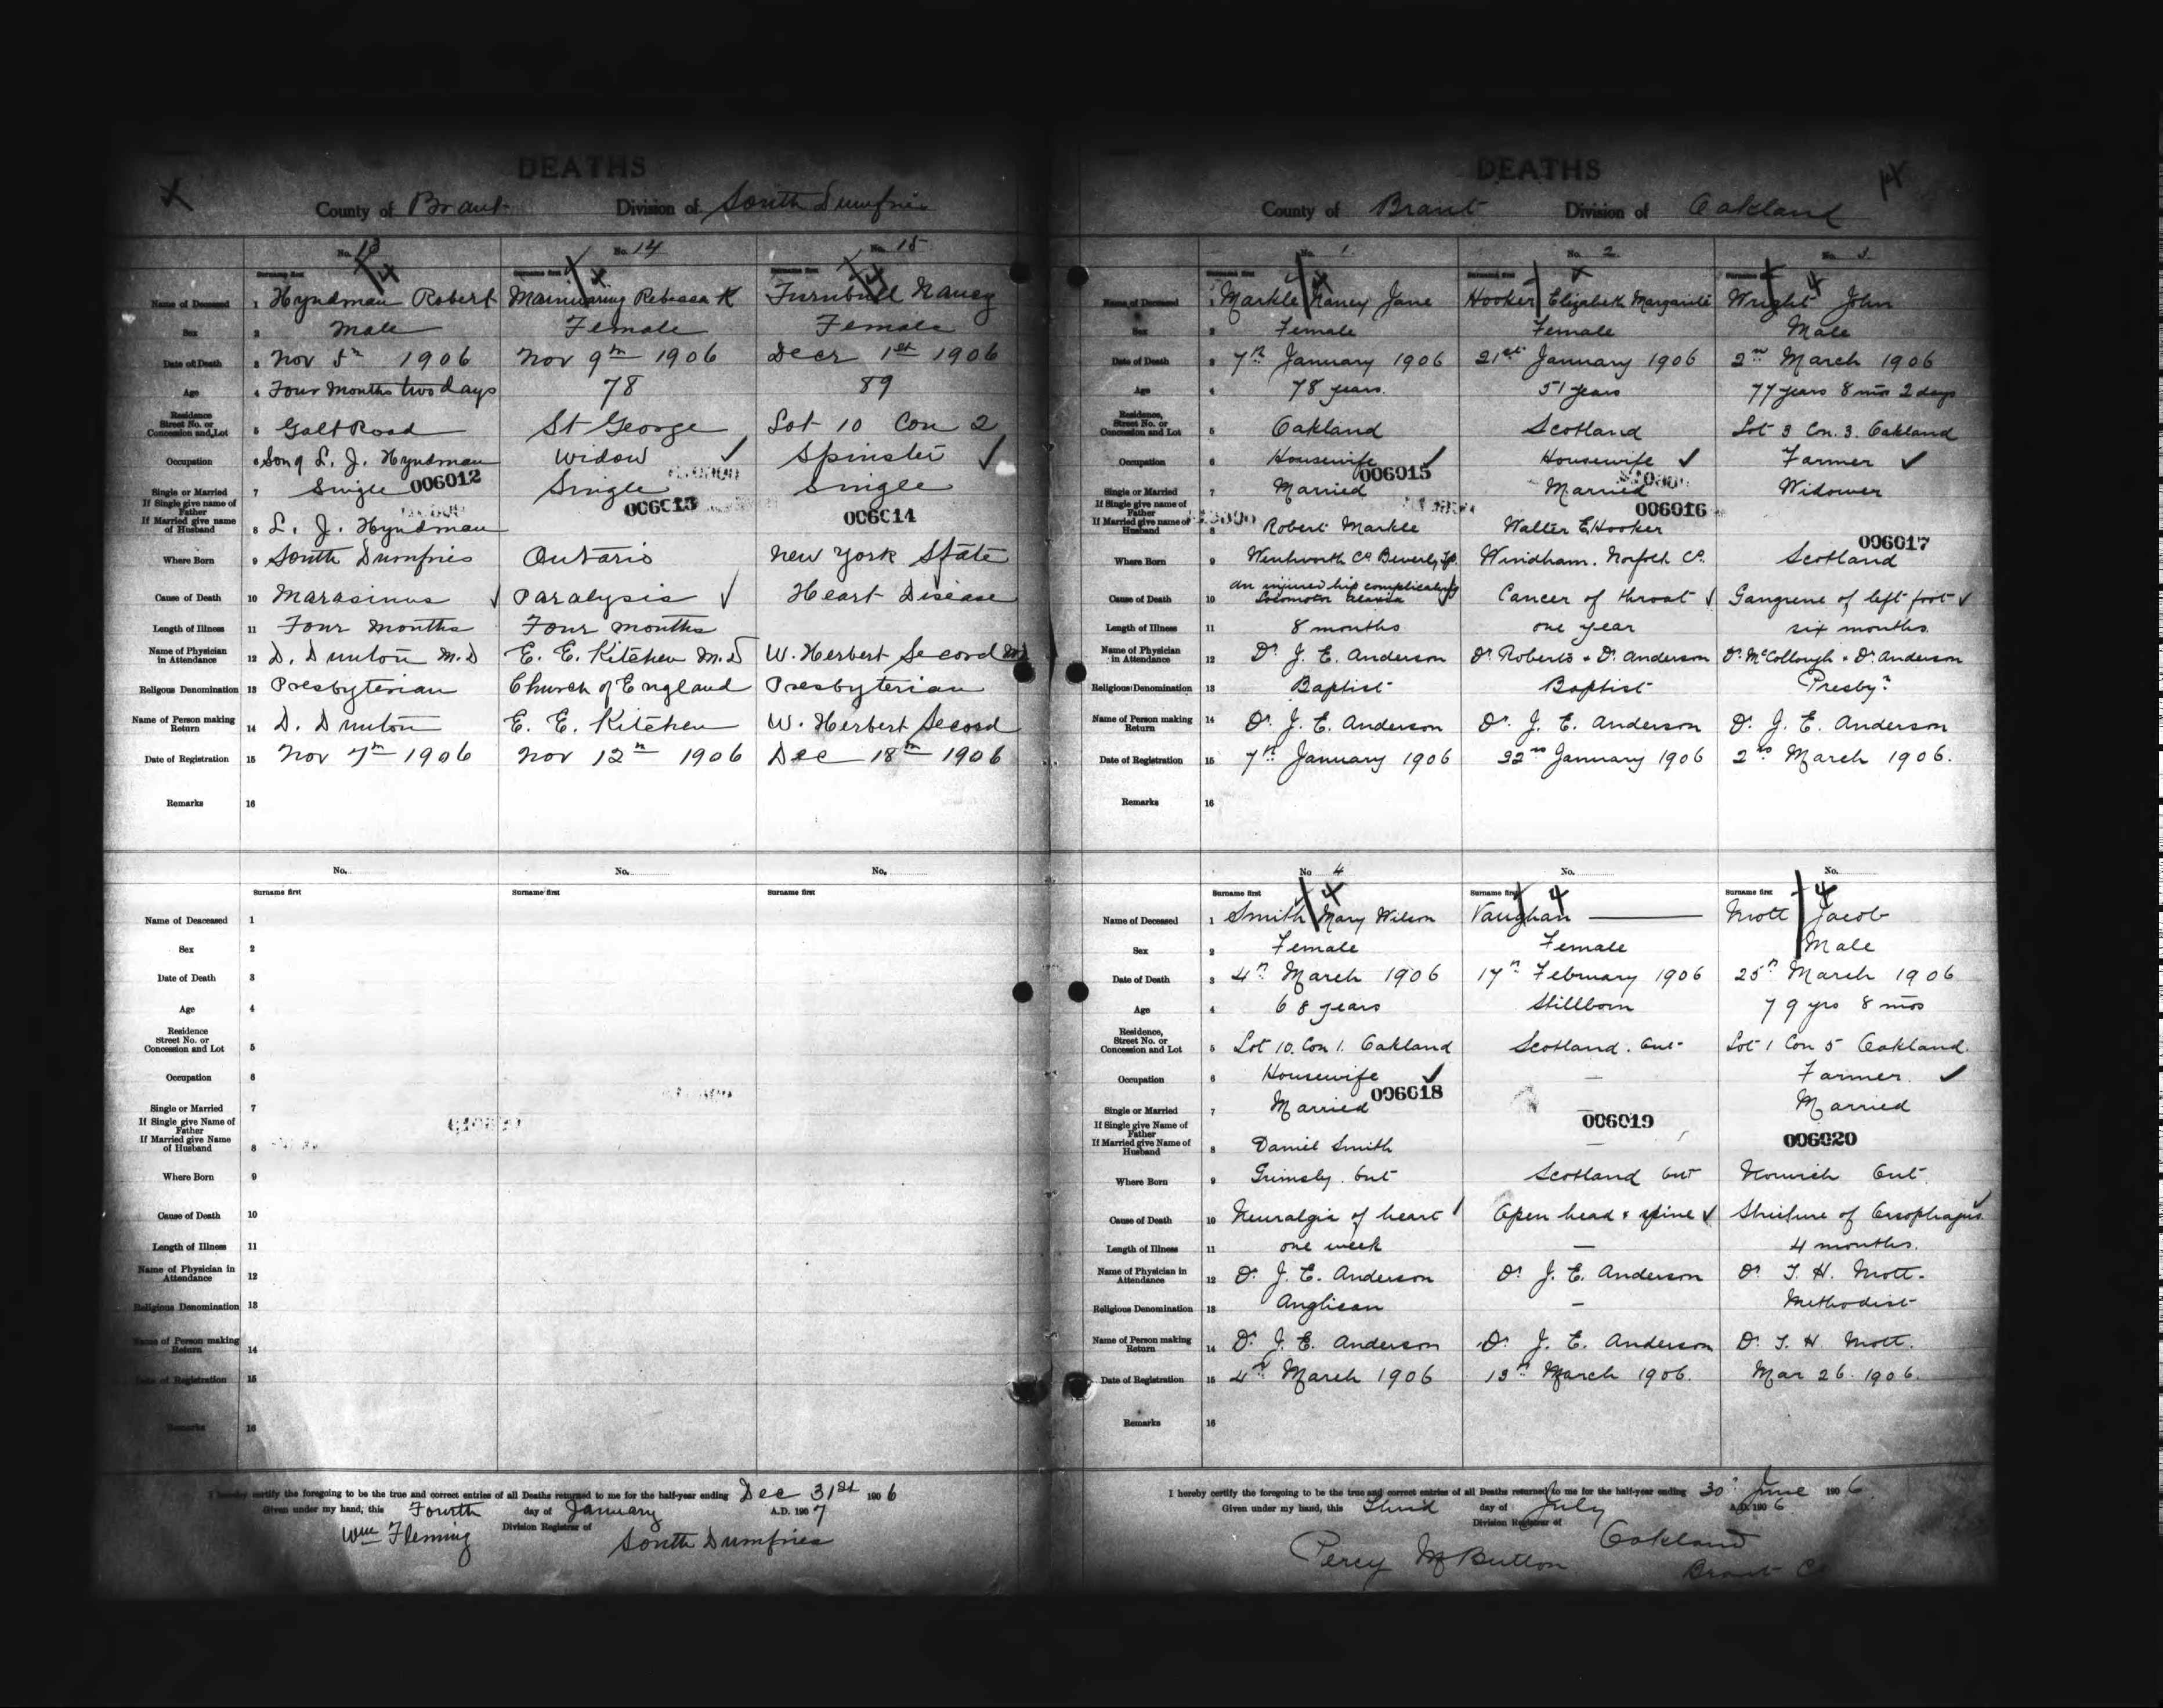 DEATHS
County of Brant Division of South Dumfries
No. 13 No. 14 No. 15
Surname first Surname first Surname first
Name of Deceased 1 Hyndman Robert Mainwaring Rebecca K Turnbull Nancy
Sex 2 Male Female Female
Date of Death 3 Nov 5th 1906 Nov 9th 1906 Decr 1st 1906
Age 4 Four Months two days 78 89
Residence Street No. or Concession and Lot 5 Galt Road St George Lot 10 Con 2
Occupation 6 Son of L. J. Hyndman Widow Spinster
Single or Married 7 Single 006012 Single 006013 Single 006014
If Single give name of Father If Married give name of Husband 8 L. J. Hyndman
Where Born 9 South Dumfries Ontario New York State
Cause of Death 10 Marasmus Paralysis Heart Disease
Length of Illness 11 Four months Four months
Name of Physician in Attendance 12 D. Dunton M.D E. E. Kitchen M.D W. Herbert Secord MD
Religous Denomination 13 Presbyterian Church of England Presbyterian
Name of Person making Return 14 D. Dunton E. E. Kitchen W. Herbert Secord
Date of Registration 15 Nov 7th 1906 Nov 12th 1906 Dec 18th 1906
Remarks 16
No. No. No.
Surname first Surname first Surname first
Name of Deaceased 1
Sex 2
Date of Death 3
Age 4
Residence Street No. or Concession and Lot 5
Occupation 6
Single or Married 7
If Single give Name of Father If Married give Name of Husband 8
Where Born 9
Cause of Death 10
Length of Illness 11
Name of Physician in Attendance 12
Religious Denomination 13
Name of Person making Return 14
Date of Registration 15
Remarks 16
I hereby certify the foregoing to be the true and correct entries of all Deaths returned to me for the half-year ending Dec 31st 1906
Given under my hand, this Fourth day of January A.D. 1907
Wm Fleming Division Registrar of South Dumfries
DEATHS
County of Brant Division of Oakland
No. 1. No. 2. No. 3.
Surname first Surname first Surname first
Name of Deceased 1 Markle Nancy Jane Hooker Elizabeth Margarite Wright John
Sex 2 Female Female Male
Date of Death 3 7th January 1906 21st January 1906 2nd March 1906
Age 4 78 years. 51 years 77 years 8 mos 2 days
Residence, Street No. or Concession and Lot 5 Oakland Scotland Lot 3 Con. 3. Oakland
Occupation 6 Housewife Housewife Farmer
Single or Married 7 Married 006015 Married 006016 Widower
If Single give name of Father If Married give name of Husband 8 Robert Markle Walter E. Hooker 006017
Where Born 9 Wentworth Co. Beverly Tp. Windham. Norfolk Co. Scotland
Cause of Death 10 An injured hip complicating Locomotor Ataxia Cancer of throat Gangrene of left foot
Length of Illness 11 8 months one year six months.
Name of Physician in Attendance 12 Dr J. E. Anderson Dr Roberts + Dr. Anderson Dr. McCollough + Dr. Anderson
Religious Denomination 13 Baptist Baptist Presbyn
Name of Person making Return 14 Dr. J. E. Anderson Dr. J. E. Anderson Dr. J. E. Anderson
Date of Registration 15 7th January 1906 22nd January 1906 2nd March 1906.
Remarks 16
No 4 No. No.
Surname first Surname first Surname first
Name of Deceased 1 Smith Mary Wilson Vaughan —— Mott Jacob
Sex 2 Female Female Male
Date of Death 3 4th March 1906 17th February 1906 25th March 1906
Age 4 68 years Stillborn 79 yrs 8 mos
Residence, Street No. or Concession and Lot 5 Lot 10. Con 1. Oakland Scotland. Ont- Lot 1 Con 5 Oakland.
Occupation 6 Housewife — Farmer.
Single or Married 7 Married 006018 — 006019 Married 006020
If Single give Name of Father If Married give Name of Husband 8 Daniel Smith —
Where Born 9 Grimsby. Ont Scotland Ont Norwich Ont.
Cause of Death 10 Neuralgia of heart Open head & spine Stricture of Oesophagus
Length of Illness 11 one week — 4 months.
Name of Physician in Attendance 12 Dr. J. E. Anderson Dr J. E. Anderson Dr T. H. Mott.
Religious Denomination 13 Anglican — Methodist
Name of Person making Return 14 Dr. J. E. Anderson Dr. J. E. Anderson Dr. T. H Mott.
Date of Registration 15 4th March 1906 13th March 1906. Mar 26. 1906.
Remarks 16
I hereby certify the foregoing to be the true and correct entries of all Deaths returned to me for the half-year ending 30th June 1906.
Given under my hand, this Third day of July A.D. 1906
Division Registrar of Oakland
Percy M Button Brant Co